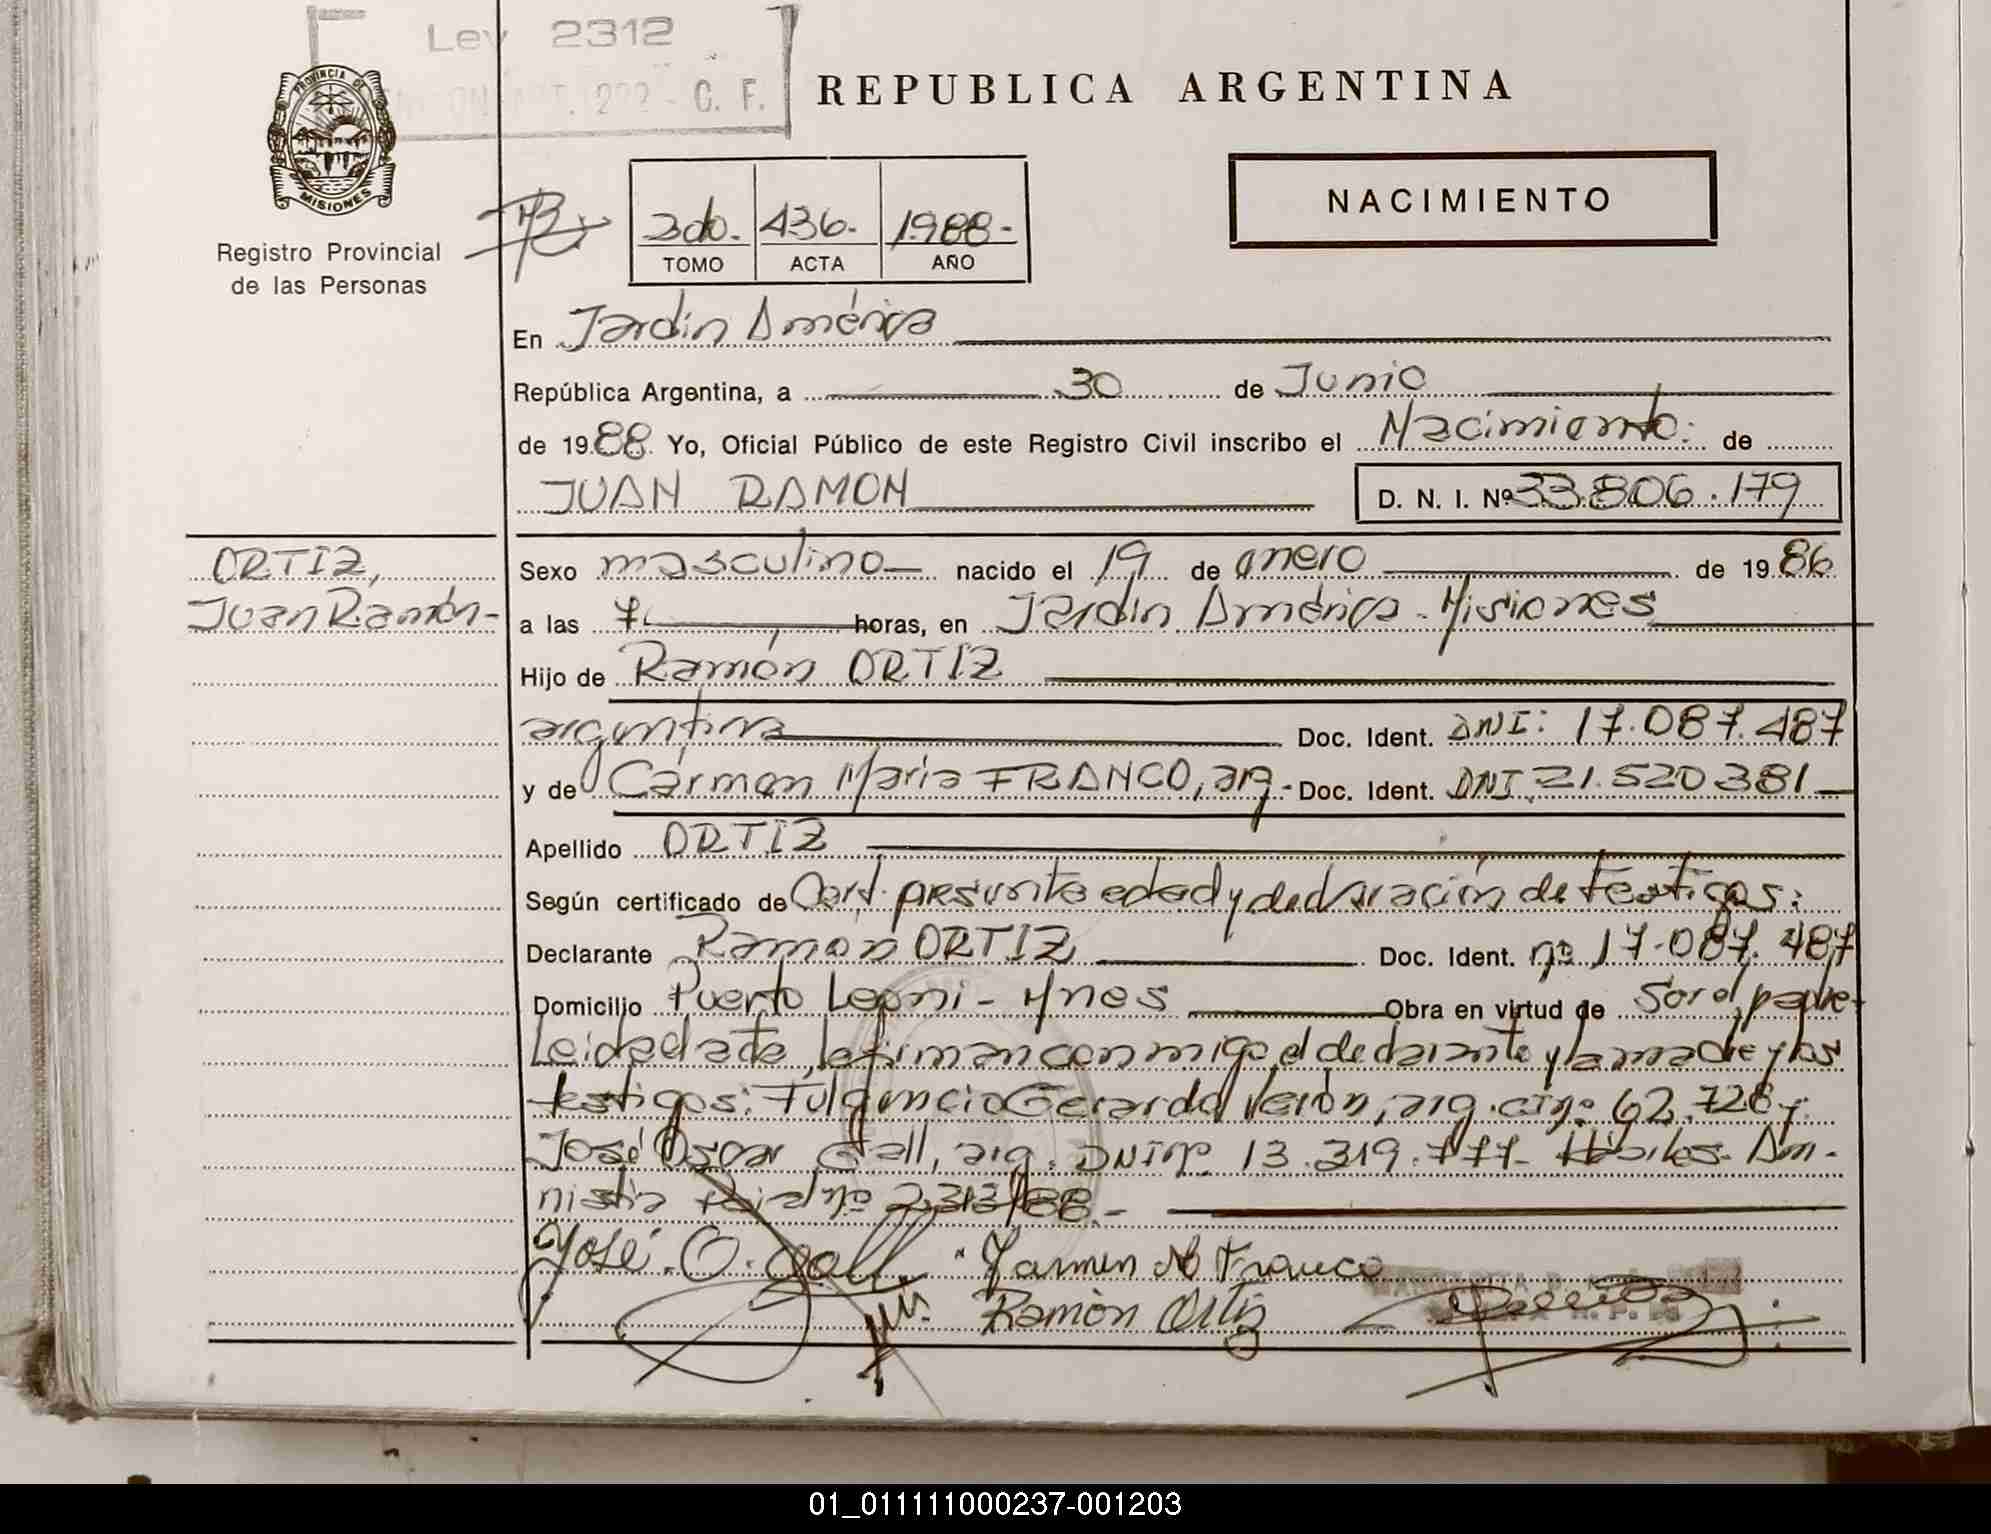 Ley 2312
C. F.
PROVINCIA DE
MISIONES
Registro Provincial
de las Personas
REPUBLICA ARGENTINA
NACIMIENTO
2do. 436. 1.988-
TOMO ACTA AÑO
En Jardín América
República Argentina, a 30 de Junio
de 1988 Yo, Oficial Público de este Registro Civil inscribo el Nacimiento: de
JUAN RAMON D. N. I. Nº 33.806.179
ORTIZ,
Juan Ramón-
Sexo masculino nacido el 19 de enero de 1986
a las 7 horas, en Jardín América - Misiones
Hijo de Ramón ORTIZ
argentina Doc. Ident. DNI: 17.087.487
y de Carmen Maria FRANCO, arg- Doc. Ident. DNI. 21.520.381
Apellido ORTIZ
Según certificado de Cert. presunta edad y declaración de testigos:
Declarante Ramón ORTIZ Doc. Ident. nº 17.087.487
Domicilio Puerto Leoni - Mnes Obra en virtud de Ser el padre-
Leida el acta, la firman conmigo el declarante y la madre y los
testigos: Fulgencio Gerardo Verón, arg. CI nº 62.728 y
José Oscar Gall, arg. DNI nº 13.319.777- Hábiles- Am-
nistia nº 2.313/88.-
José O. Gall Carmen M Franco
Ramòn Ortiz
01_011111000237-001203